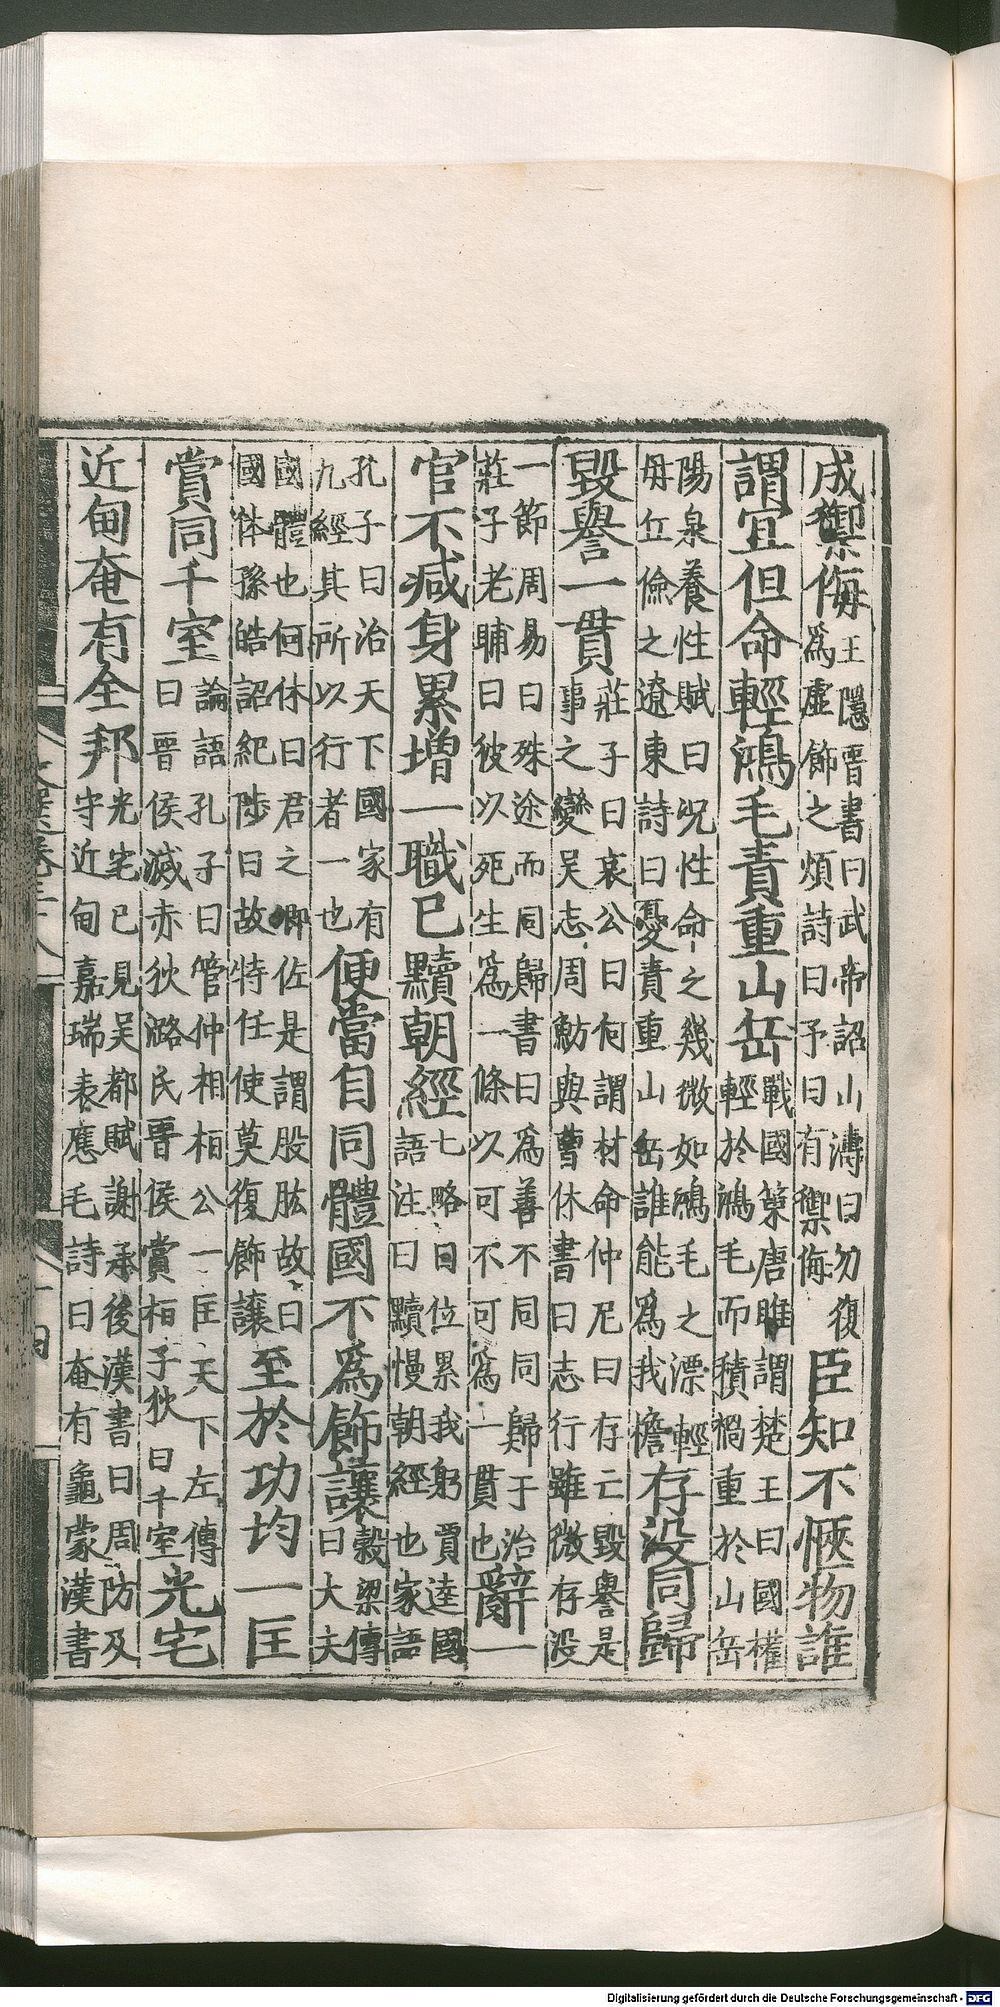 成禦侮王隱晉書曰武帝詔山濤曰勿復為虛飾之煩詩曰予曰有禦侮臣知不愜物誰
謂宜但命輕鴻毛責重山岳戰國策唐雎謂楚王曰國權輕於鴻毛而積禍重於山岳
陽泉養性賦曰況性命之幾微如鴻毛之漂輕毋丘儉之遼東詩曰憂責重山岳誰能為我檐存没同歸
毀譽一貫莊子曰哀公曰何謂材命仲尼曰存亡毀譽是事之變吳志周魴與曹休書曰志行雖微存没
一節周易曰殊途而同歸書曰為善不同同歸于治莊子老聃曰彼以死生為一條以可不可為一貫也辭一
官不減身累增一職已黷朝經七略曰位累我躬賈逵國語注曰黷慢朝經也家語
孔子曰治天下國家有九經其所以行者一也便當自同體國不為飾讓穀梁傳曰大夫
國體也何休曰君之卿佐是謂股肱故曰國体孫皓詔紀陟曰故特任使莫復飾讓至於功均一匡
賞同千室論語孔子曰管仲相桓公一匡天下左傳曰晉侯滅赤狄潞民晉侯賞桓子狄曰千室光宅
近甸奄有全邦光宅已見吳都賦謝承後漢書曰周防及守近甸嘉瑞表應毛詩曰奄有龜蒙漢書
Digitalisierung gefördert durch die Deutsche Forschungsgemeinschaft - DFG